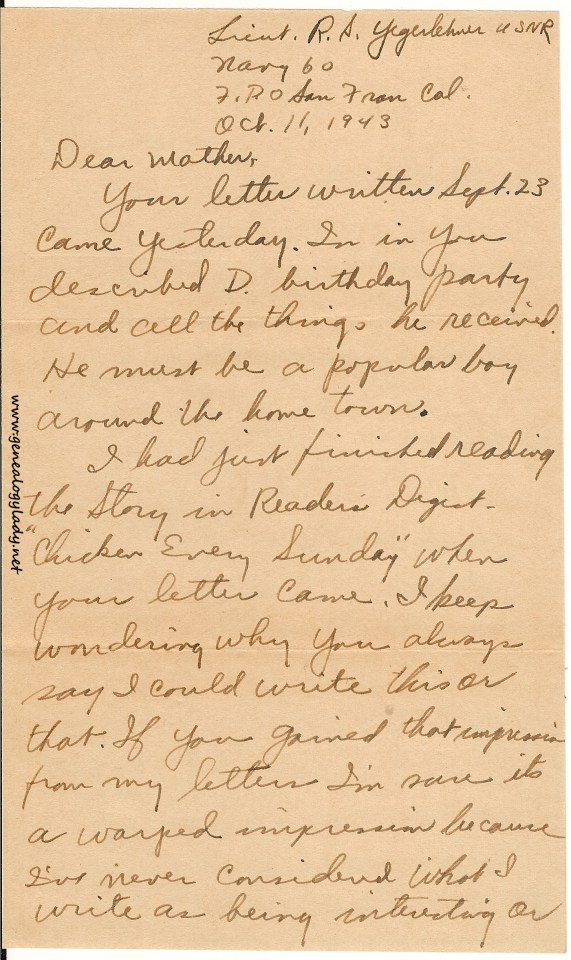 Lieut. R. S. Yegerlehner USNR
Navy 60
F.P.O San Fran Cal.
Oct. 11, 1943
Dear Mother,
Your letter written Sept. 23
came yesterday. In in you
described D. birthday party
and all the things he received.
He must be a popular boy
around the home town.
I had just finished reading
the Story in Readers Digest-
"Chicken Every Sunday" when
your letter came. I keep
wondering why you always
say I could write this or
that. If you gained that impression
from my letters I'm sure its
a warped impression because
I've never considered what I
write as being interesting or
www.genealogylady.net